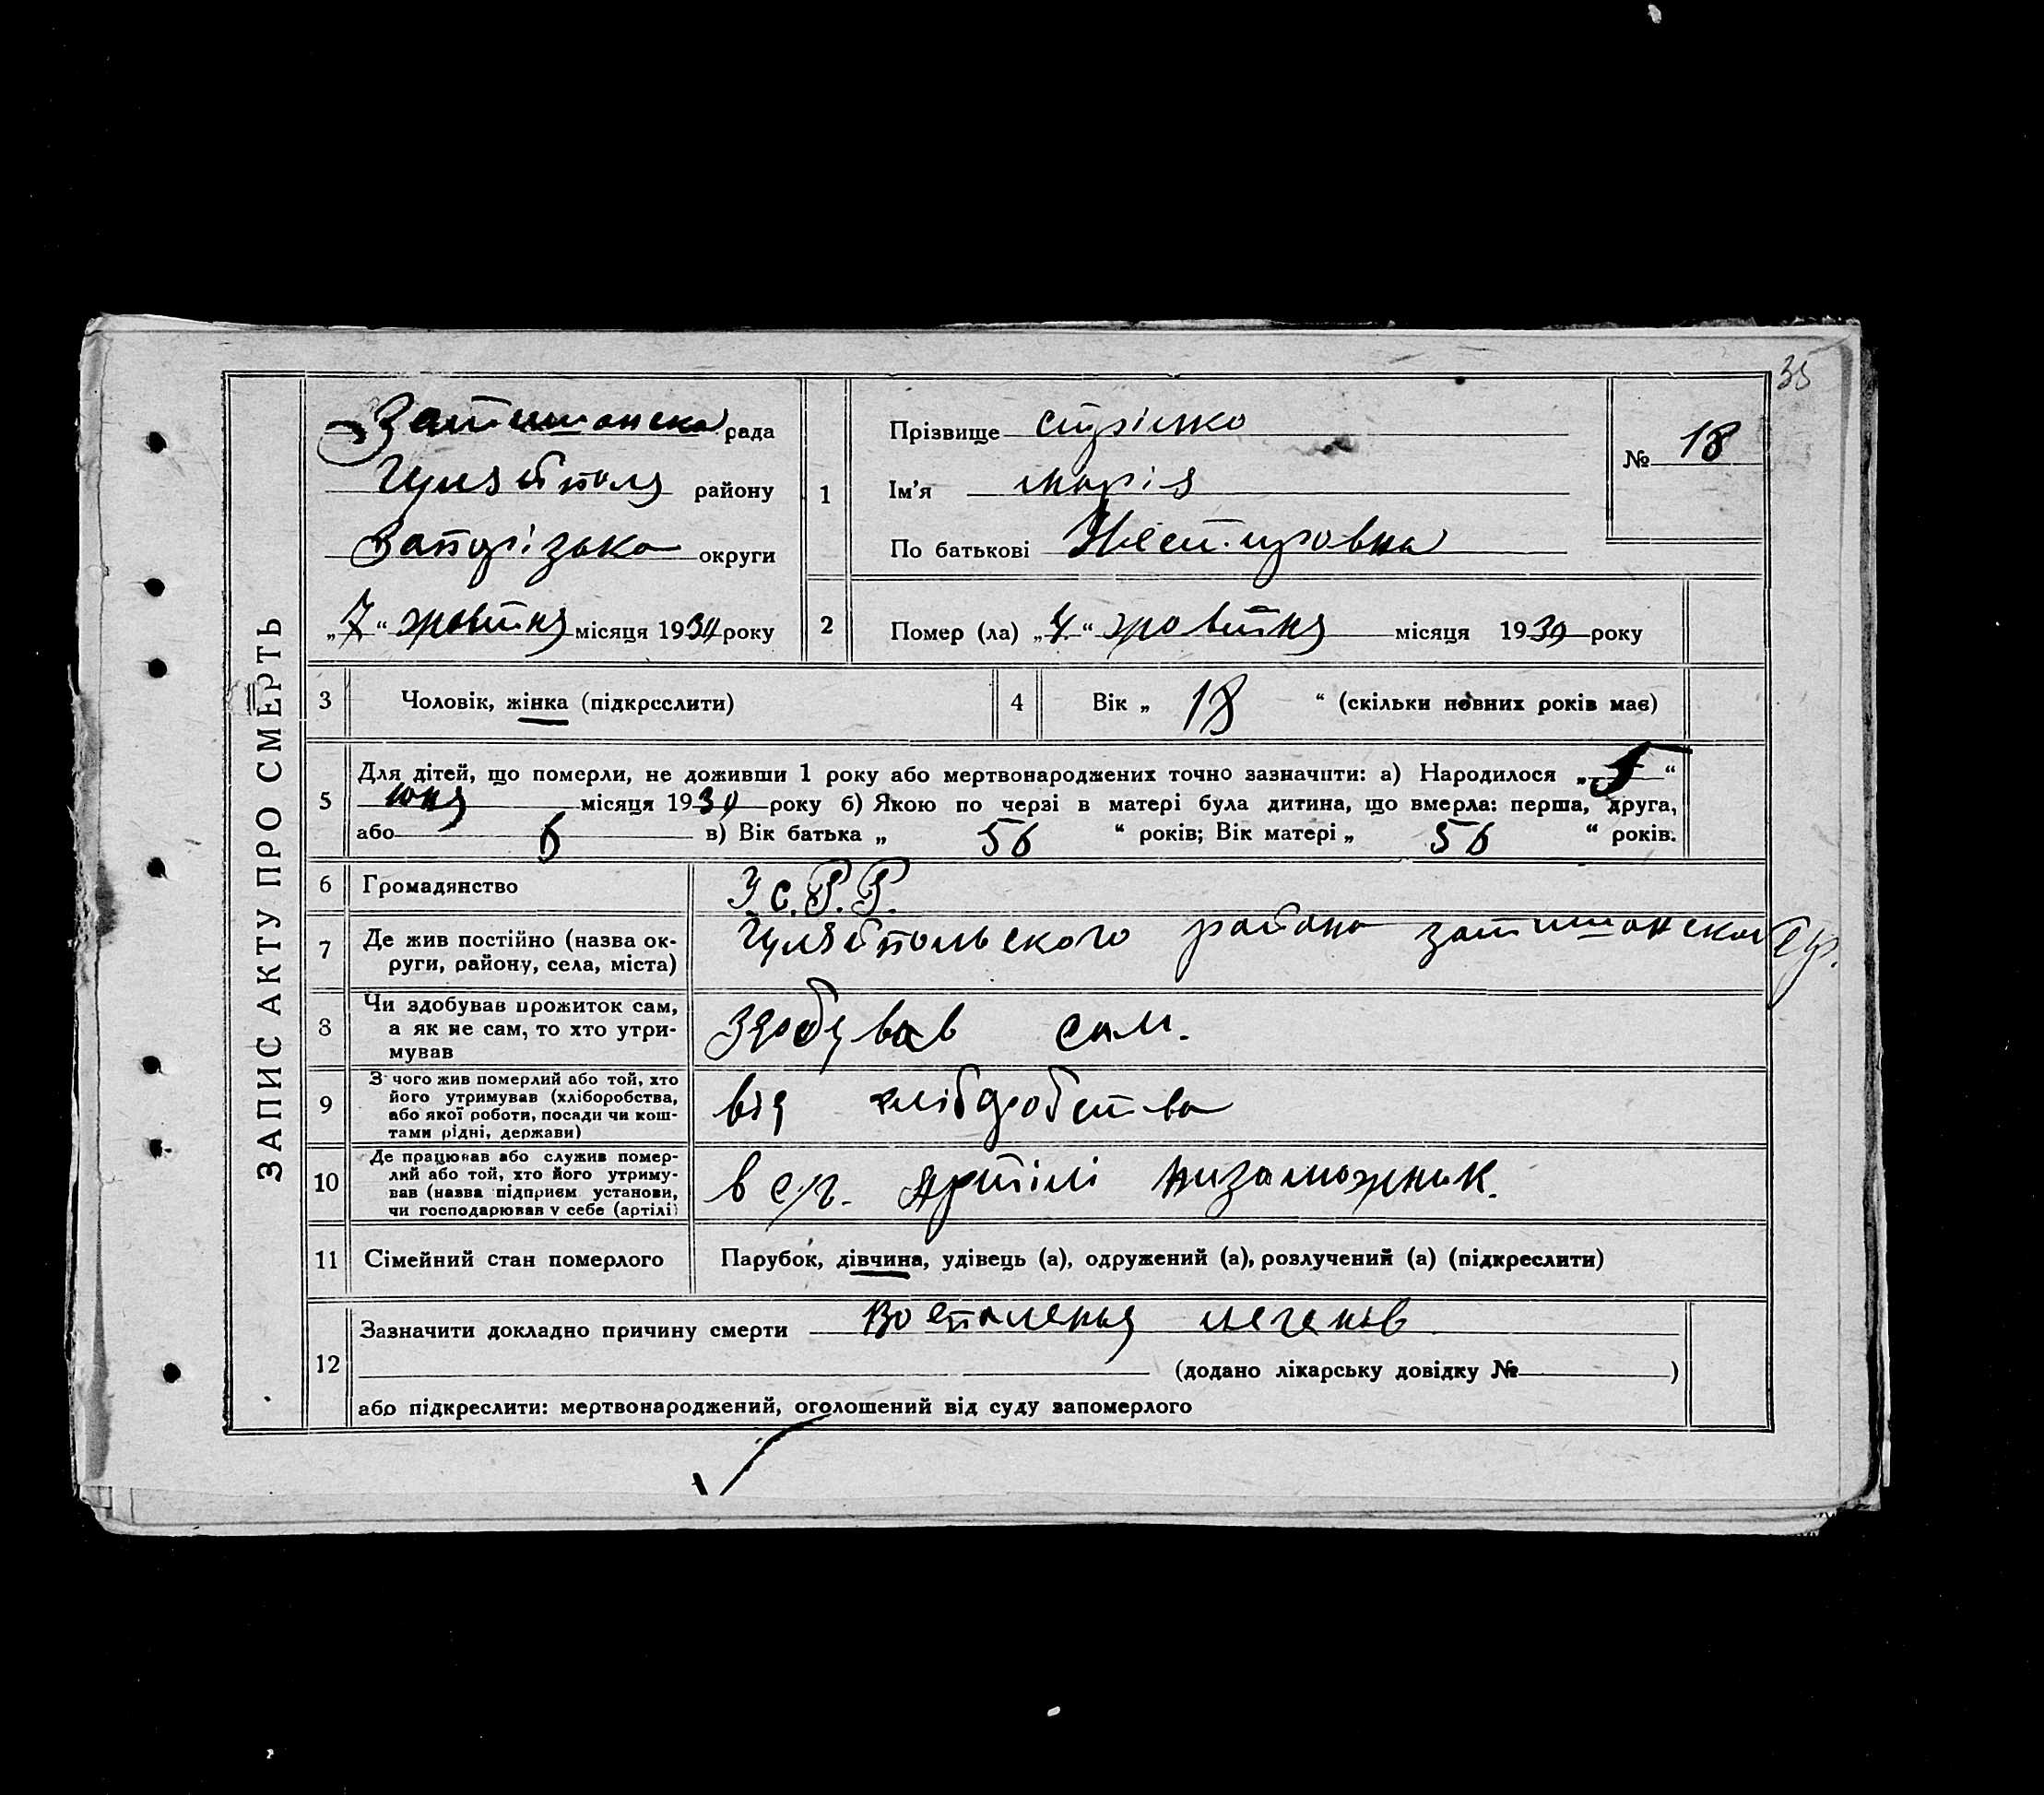 35
ЗАПИС АКТУ ПРО СМЕРТЬ
Затишанска рада
Гуляйполя району
Запорізька округи
„7“ жовтня місяця 1934 року
1
Прізвище стрілко
Ім’я марія
По батькові
№ 18
2
Помер (ла) „4“ жовтня місяця 193 року
3
Чоловік, жінка (підкреслити)
4
Вік „ 18 “ (скільки повних років має)
5
Для дітей, що померли, не доживши 1 року або мертвонароджених точно зазначити: а) Народилося „ “
юня місяця 193 року б) Якою по черзі в матері була дитина, що вмерла: перша, друга,
або 6 в) Вік батька „ 56 “ років; Вік матері „ 56 “ років.
6
Громадянство
У.с.Р.Р.
7
Де жив постійно (назва ок-
руги, району, села, міста)
Гуляйпольского района затишанской с/р.
8
Чи здобував прожиток сам,
а як не сам, то хто утри-
мував
здобував сам.
9
З чого жив померлий або той, хто
його утримував (хліборобства,
або якої роботи, посади чи кош-
тами рідні, держави)
від хліборобства
10
Де працював або служив помер-
лий або той, хто його утриму-
вав (назва підприєм установи,
чи господарював у себе (артілі)
в с/г. артілі низаможник.
11
Сімейний стан померлого
Парубок, дівчина, удівець (а), одружений (а), розлучений (а) (підкреслити)
12
Зазначити докладно причину смерти Воспаленыя легенів
(додано лікарську довідку № )
або підкреслити: мертвонароджений, оголошений від суду запомерлого